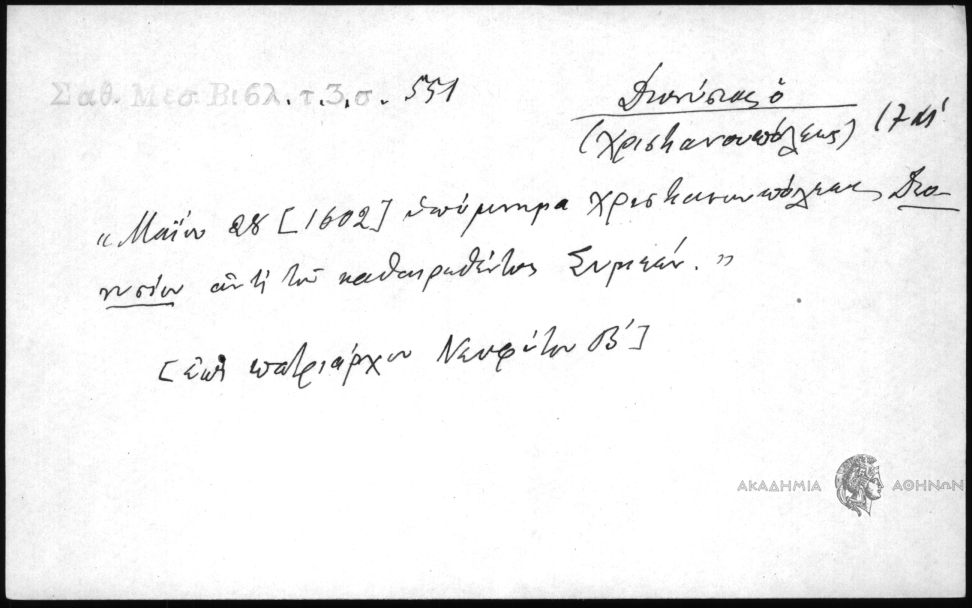 Σαθ. Μεσ. Βιβλ. τ. 3. σ. 551
Διονύσιος ὁ
(Χριστιανουπόλεως) 17 αἰ
«Μαΐου 28 [1602] ὑπόμνημα Χριστιανουπόλεως Διο-
νυσίου ἀντὶ τοῦ καθαιρεθέντος Συμεών.»
[ἐπὶ πατριάρχου Νεοφύτου Β']
ΑΚΑΔΗΜΙΑ ΑΘΗΝΩΝ